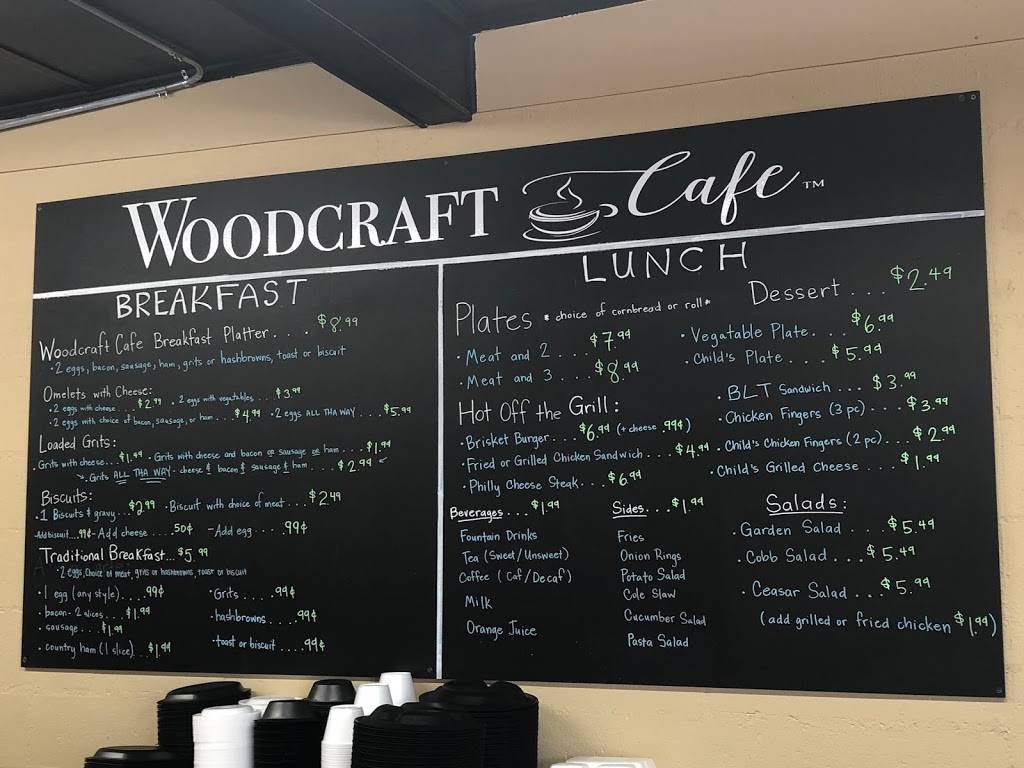 WOODCRAFT Cafe ™
BREAKFAST
Woodcraft Cafe Breakfast Platter. . . . $8.99
• 2 eggs, bacon, sausage, ham, grits or hashbrowns, toast or biscuit
Omelets with Cheese:
• 2 eggs with cheese . . . $2.99 • 2 eggs with vegetables . . . $3.99
• 2 eggs with choice of bacon, sausage, or ham . . . $4.99 • 2 eggs ALL THA WAY . . . . $5.99
Loaded Grits:
• Grits with cheese. . . . $1.99 • Grits with cheese and bacon or sausage or ham . . . . $1.99
Grits ALL THA WAY - cheese & bacon & sausage & ham . . . . $2.99
Biscuits:
• 1 Biscuits & gravy. . . $2.99 • Biscuit with choice of meat. . . . $2.49
-Add biscuit. . . .99¢ - Add cheese . . . . .50¢ - Add egg . . . . .99¢
Traditional Breakfast... $5.99
• 2 eggs, Choice of meat, grits or hashbrowns, toast or biscuit
• 1 egg (any style). . . . .99¢ • Grits. . . . .99¢
• bacon - 2 slices. . . . $1.99 • hashbrowns . . . . .99¢
• sausage . . . $1.99
• country ham (1 slice). . . $1.99 • toast or biscuit . . . . .99¢
LUNCH
Plates * choice of cornbread or roll*
• Meat and 2 . . . . $7.99
• Meat and 3 . . . . $8.99
Dessert . . . $2.49
• Vegatable Plate. . . . $6.99
• Child's Plate . . . . $5.99
Hot Off the Grill:
• Brisket Burger. . . . $6.99 (+ cheese .99¢)
• Fried or Grilled Chicken Sandwich . . . . $4.99
• Philly Cheese Steak. . . $6.99
• BLT Sandwich . . . $3.99
• Chicken Fingers (3 pc) . . . $3.99
• Child's Chicken Fingers (2 pc). . . $2.99
• Child's Grilled Cheese . . . . $1.99
Beverages. . . $1.99
Fountain Drinks
Tea (Sweet/Unsweet)
Coffee (Caf/Decaf)
Milk
Orange Juice
Sides. . . $1.99
Fries
Onion Rings
Potato Salad
Cole Slaw
Cucumber Salad
Pasta Salad
Salads:
• Garden Salad . . . $5.49
• Cobb Salad . . . $5.49
• Ceasar Salad . . . $5.99
(add grilled or fried chicken $1.99)